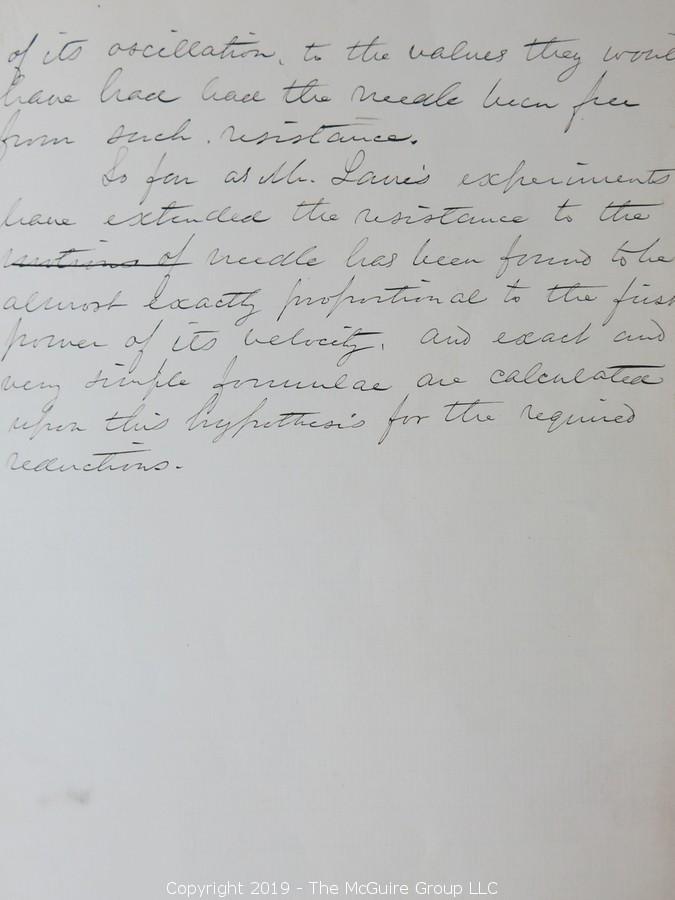 of its oscillation, to the values they would
have had had the needle been free
from such resistance.
So far as Mr. experiments
have extended the resistance to the
motions of needle has been found to be
almost exactly proportional to the first
power of its velocity, and exact and
very simple formulae are calculated
upon this hypothesis for the required
reductions.
Copyright 2019 - The McGuire Group LLC